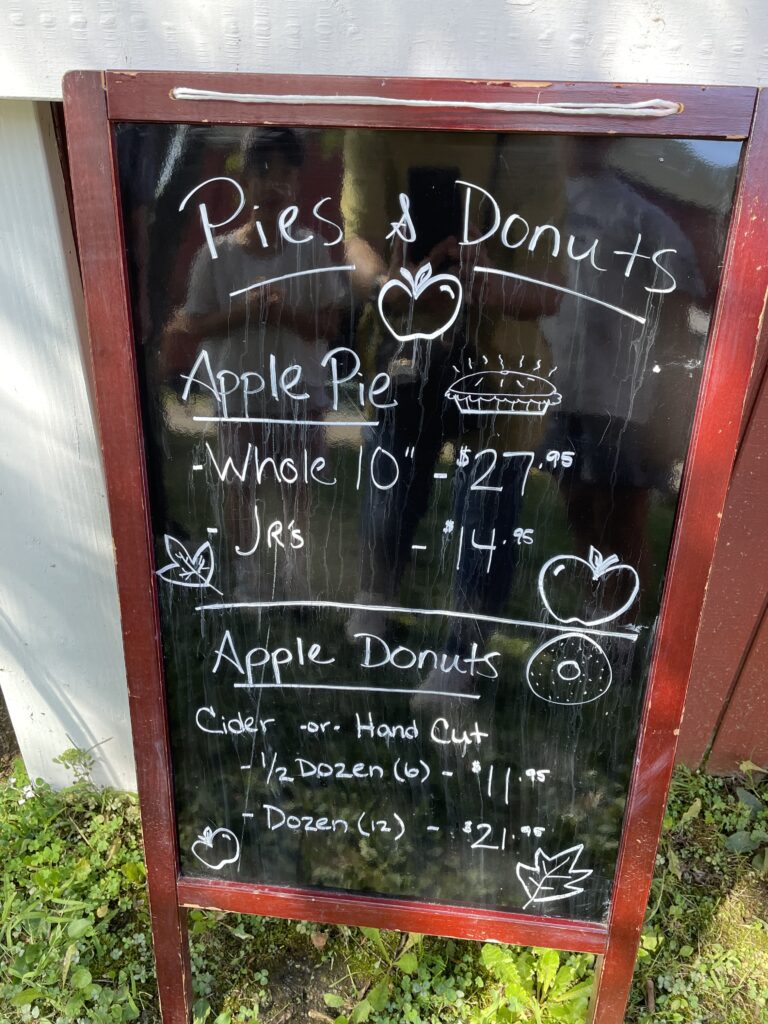 Pies & Donuts
Apple Pie
- Whole 10" - $27.95
- JR's - $14.95
Apple Donuts
Cider -or- Hand Cut
- 1/2 Dozen (6) - $11.95
- Dozen (12) - $21.95